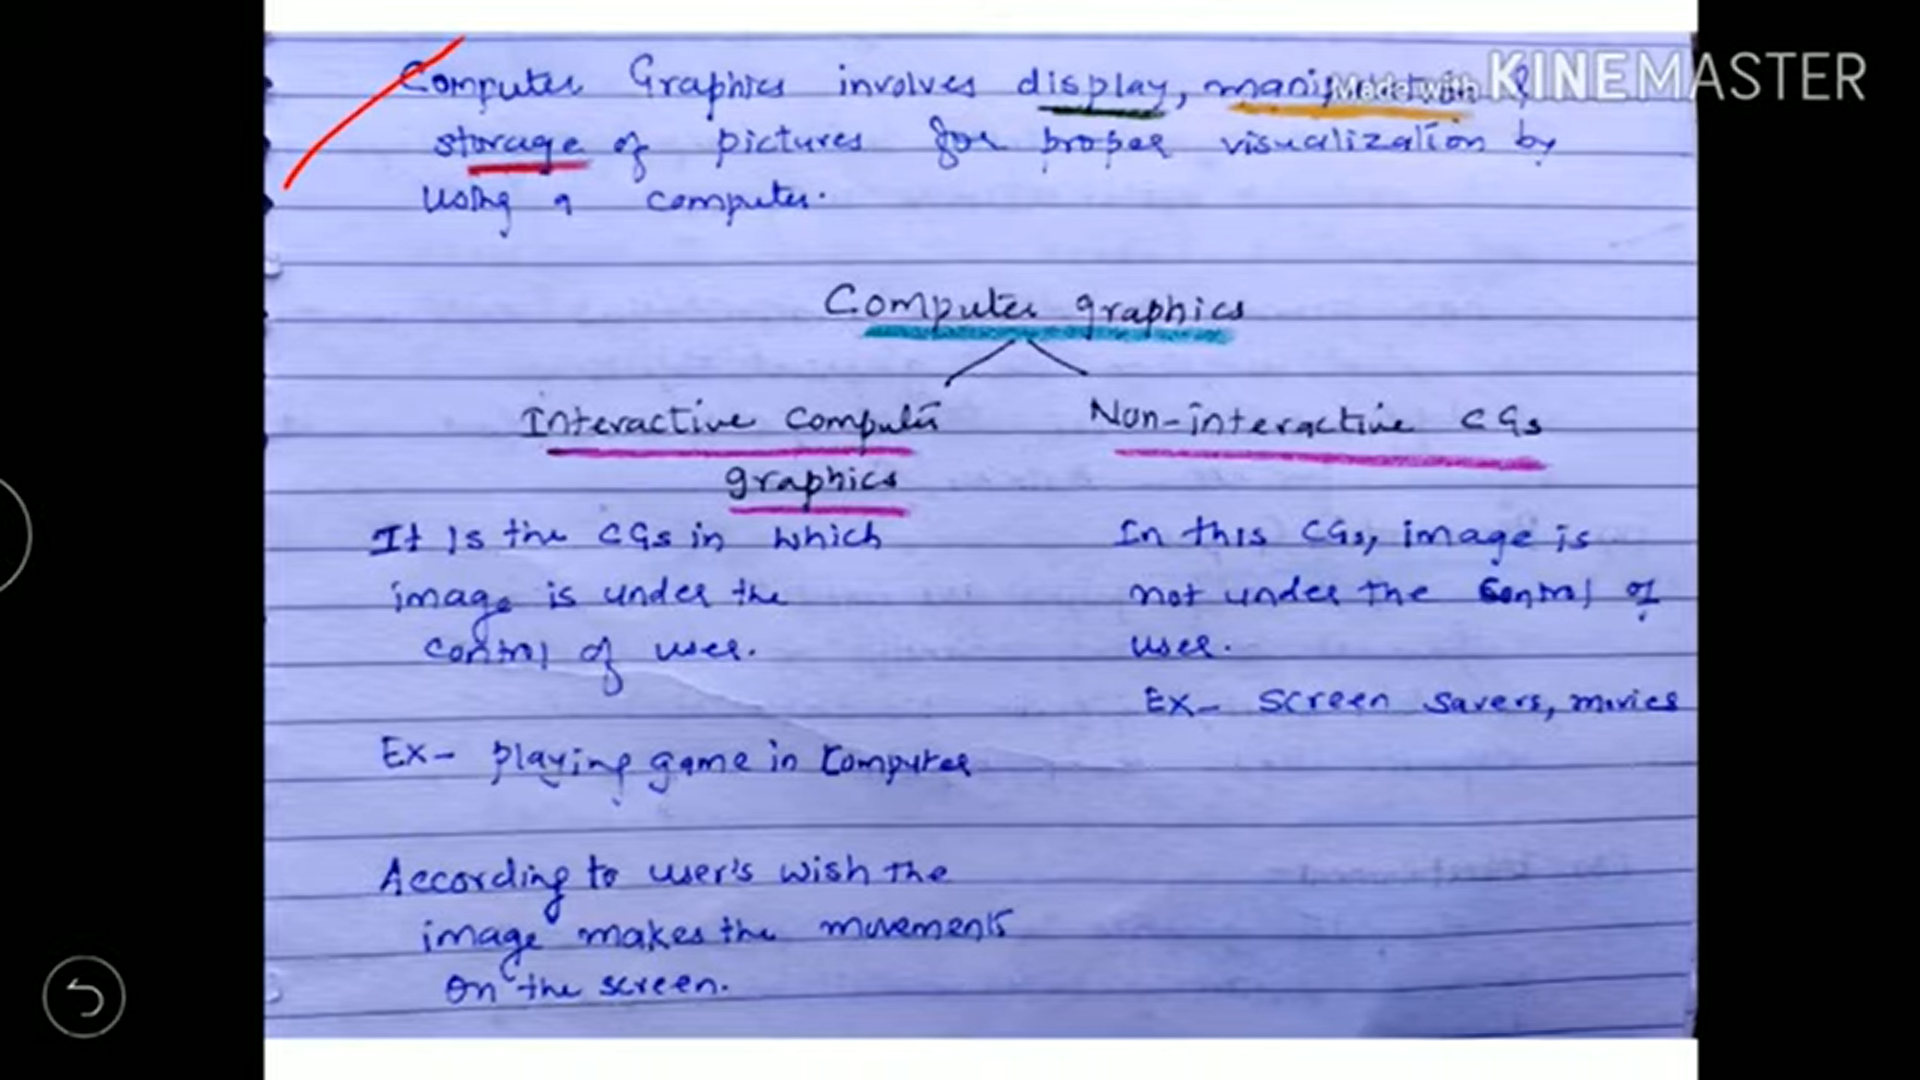 Computer Graphics involves display,
Made with KINEMASTER
storage of pictures for proper visualization by
using a computer.
Computer graphics
Interactive Computer
graphics
Non-interactive CGs
It is the CGs in which
image is under the
control of user.
Ex- Playing game in Computer
According to user's wish the
image makes the movements
on the screen.
In this CGs, image is
not under the control of
user.
Ex- Screen savers, movies